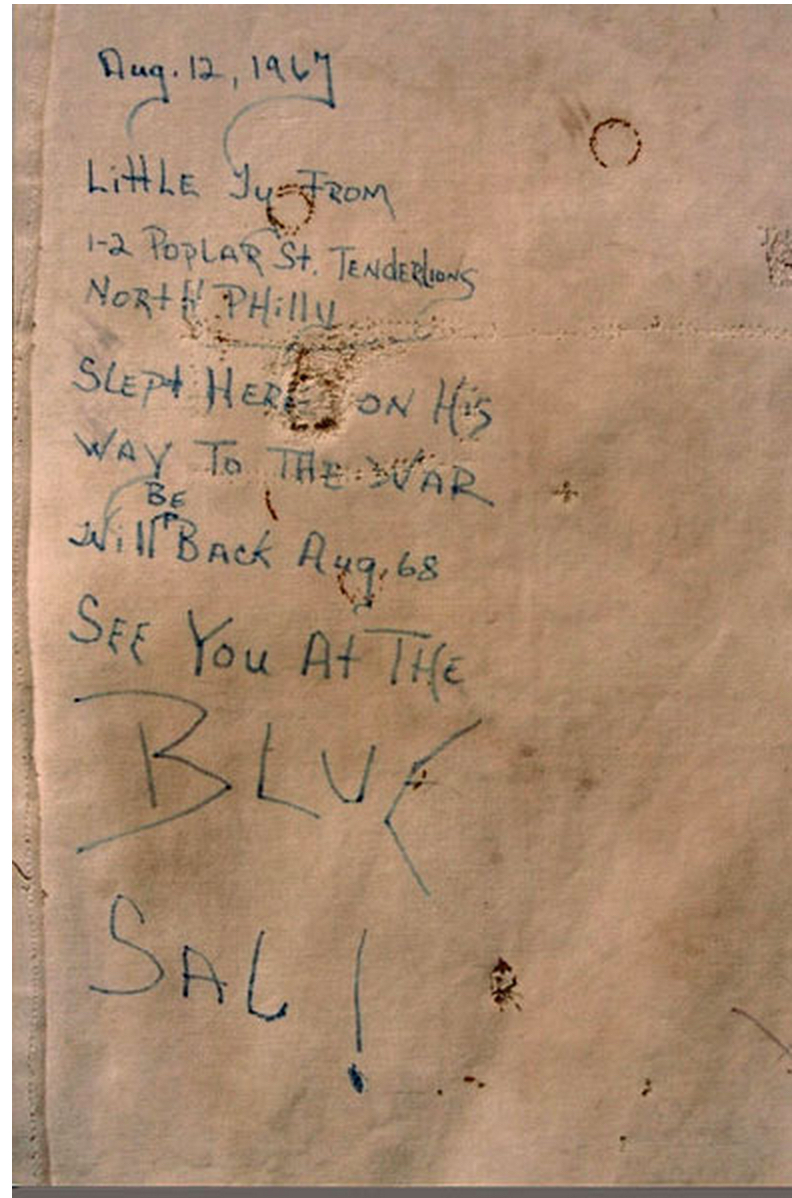 Aug. 12, 1967
LittLE Ty FROM
1-2 POPLAR St. TENDERLIONS
NORtH PHilly
SLEPt HERE ON His
WAY To THE WAR
BE
Will BACK Aug. 68
SEE YOU At THE
BLUE
SAL!